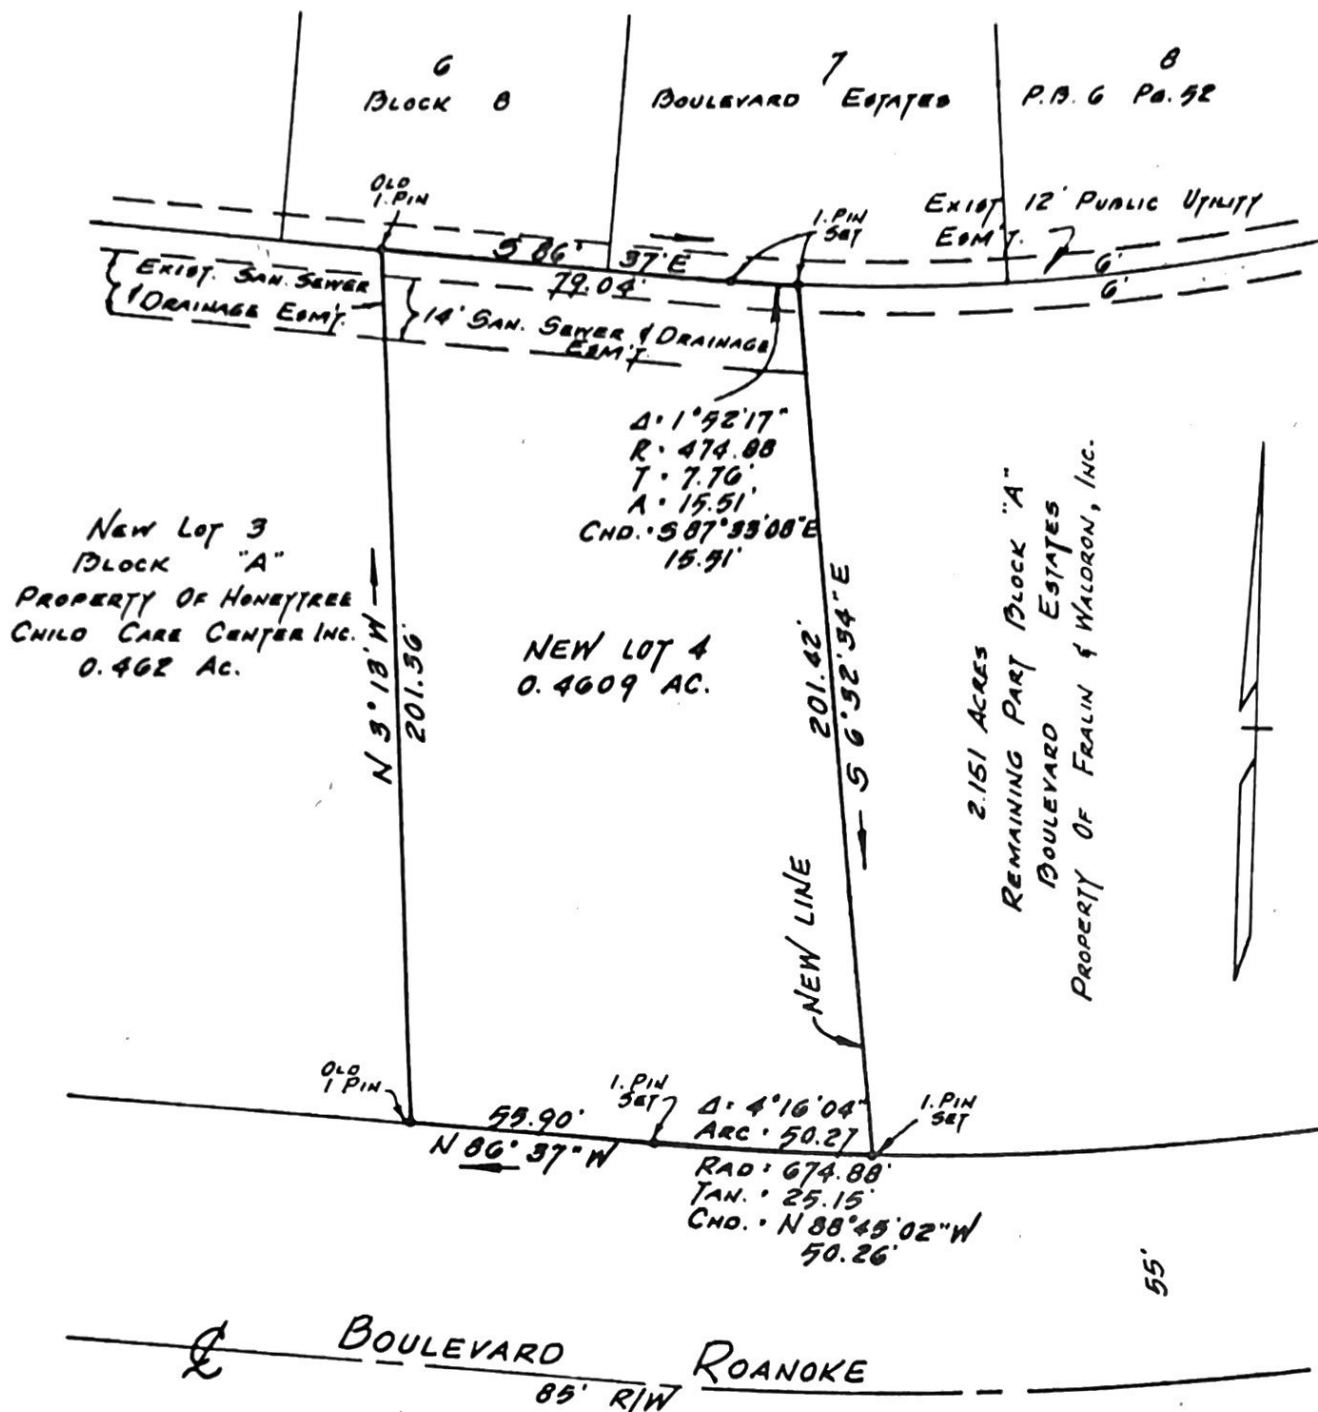 6
BLOCK 8
7
BOULEVARD ESTATES
8
P.B. 6 PG. 52
OLD
I. PIN
I. PIN
SET
EXIST. 12' PUBLIC UTILITY
ESM'T.
S 86° 37' E
79.04'
6'
6'
EXIST. SAN. SEWER
& DRAINAGE ESM'T.
14' SAN. SEWER & DRAINAGE
ESM'T.
Δ = 1°52'17"
R = 474.88
T = 7.76'
A = 15.51'
CHD. = S 87°33'08" E
15.51'
NEW LOT 3
BLOCK "A"
PROPERTY OF HONEYTREE
CHILD CARE CENTER INC.
0.462 AC.
N 3° 13' W
201.36'
NEW LOT 4
0.4609 AC.
201.42'
S 6°32'34" E
NEW LINE
2.151 ACRES
REMAINING PART BLOCK "A"
BOULEVARD ESTATES
PROPERTY OF FRALIN & WALDRON, INC.
OLD
I PIN
55.90'
N 86° 37" W
I. PIN
SET
Δ = 4°16'04"
ARC = 50.27
RAD = 674.88'
TAN. = 25.15'
CHD. = N 88°45'02" W
50.26'
I. PIN
SET
55'
℄ BOULEVARD ROANOKE
85' R/W